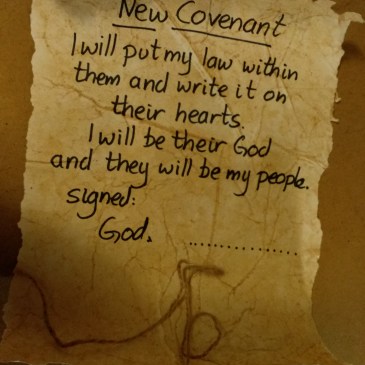 New Covenant
I will put my law within
them and write it on
their hearts.
I will be their God
and they will be my people.
signed:
God. ................